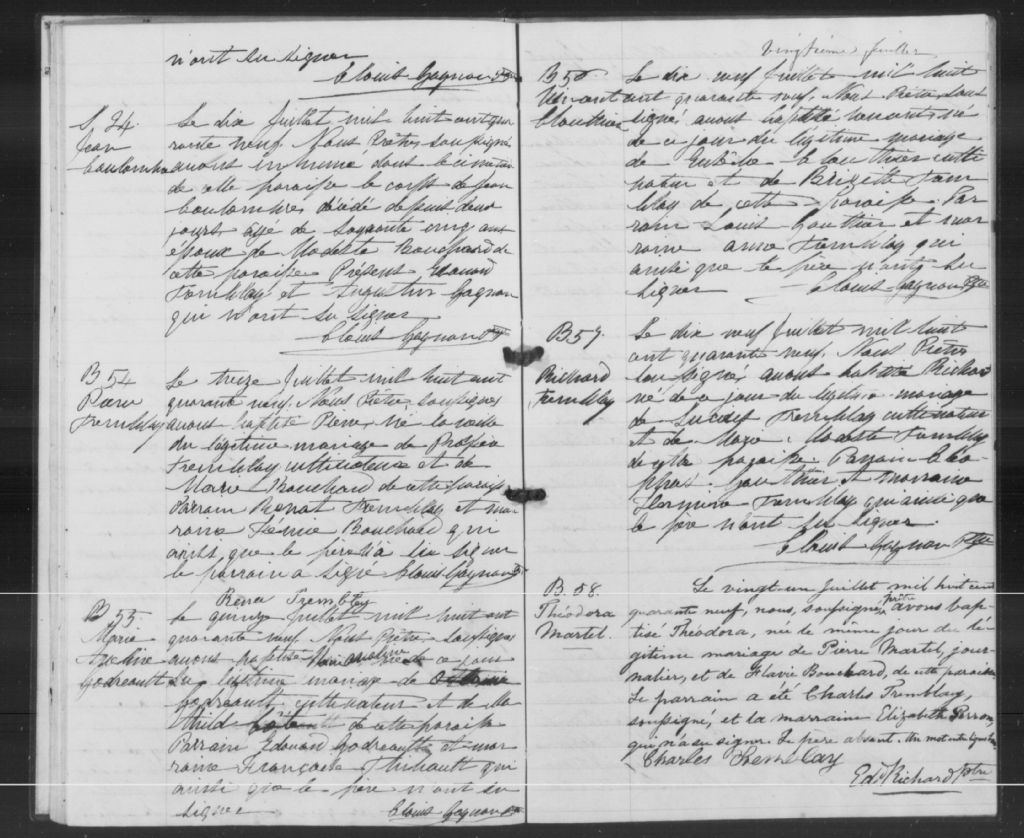 n'ont su signer
Clovis Gagnon Ptre
S 34.
Jean
Coulombe
Le dix Juillet mil huit cent qua
rante neuf. Nous Prêtre soussigné
avons inhumé dans le cimetière
de cette paroisse le corps de Jean
Coulombe, décédé depuis deux
jours, age de soixante cinq ans
époux de Modeste Bouchard de
cette paroisse Présent Edouard
Tremblay et Augustin Gagnon
qui n'ont su signer
Clovis Gagnon Ptre
B 54
Pierre
Tremblay
Le treize Juillet mil huit cent
quarante neuf. Nous Prêtre soussigné
avons baptisé Pierre, né la veille
du légitime mariage de
Tremblay cultivateur et de
Marie Bouchard de cette paroisse
Parrain Renat Tremblay et mar
raine Bouchard qui
ainsi que le père n'a su signer
le parrain a signé Clovis Gagnon Ptre
Rena Tremblay
B 55.
Marie
Godreault
Le quinze Juillet mil huit cent
quarante neuf Nous Prêtre soussigné
avons baptisé née de ce jour
du légitime mariage de
Godreault, cultivateur et de Ma
thild de cette paroisse
Parrain Edouard Godreault et mar
raine Françoise Thibault qui
ainsi que le père n'ont su
signer Clovis Gagnon Ptre
Vingtième feuillet
B 56.
Vincent
Gauthier
Le dix neuf Juillet mil huit
cent quarante neuf. Nous Prêtre sous
signé, avons baptisé Vincent né
de ce jour du légitime mariage
de Gauthier culti
vateur et de Brigette Trem
blay de cette paroisse. Par
rain Louis Gauthier et mar
raine Anne Tremblay qui
ainsi que le père n'ont su
signer Clovis Gagnon Ptre
B 57.
Richard
Tremblay
Le dix neuf Juillet mil huit
cent quarante neuf. Nous Prêtre
soussigné, avons baptisé Richard
né de ce jour du légitime mariage
de Tremblay cultivateur
et de Modeste Tremblay
de cette paroisse. Parrain Cléo-
phas Gauthier et marraine
Hermine Tremblay qui ainsi que
le père n'ont su signer.
Clovis Gagnon Ptre
B. 58.
Théodora
Martel.
Le vingt-un Juillet mil huit cent
quarante neuf, nous, soussigné, prêtre avons bap-
tisé Théodora, née le même jour du lé-
gitime mariage de Pierre Martel, jour-
nalier, et de Flavie Bouchard, de cette paroisse.
Le parrain a été Charles Tremblay,
soussigné, et la marraine Elizabeth Perron,
qui n'a su signer. Le père absent. Un mot entre lignes bon.
Charles Tremblay
Ed. Richard Ptre